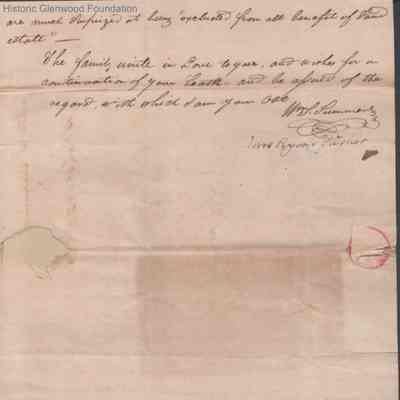 Historic Glenwood Foundation
are much surprized at being "excluded from all benefit of said
estate" —
The family unite in Love to you, and wishes for a
continuation of your health and be assured of the
regard with which I am your
Wm. S. Summers